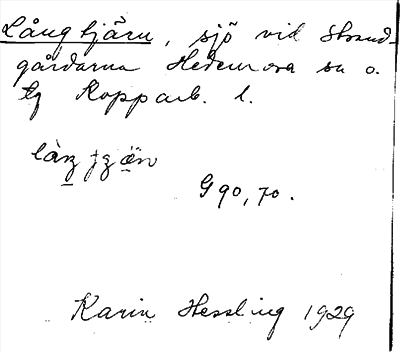 Långtjärn, sjö vid Strand-
gårdarna Hedemora sn o.
tg Kopparb. l.
G 90, 70.
Karin Hessling 1929